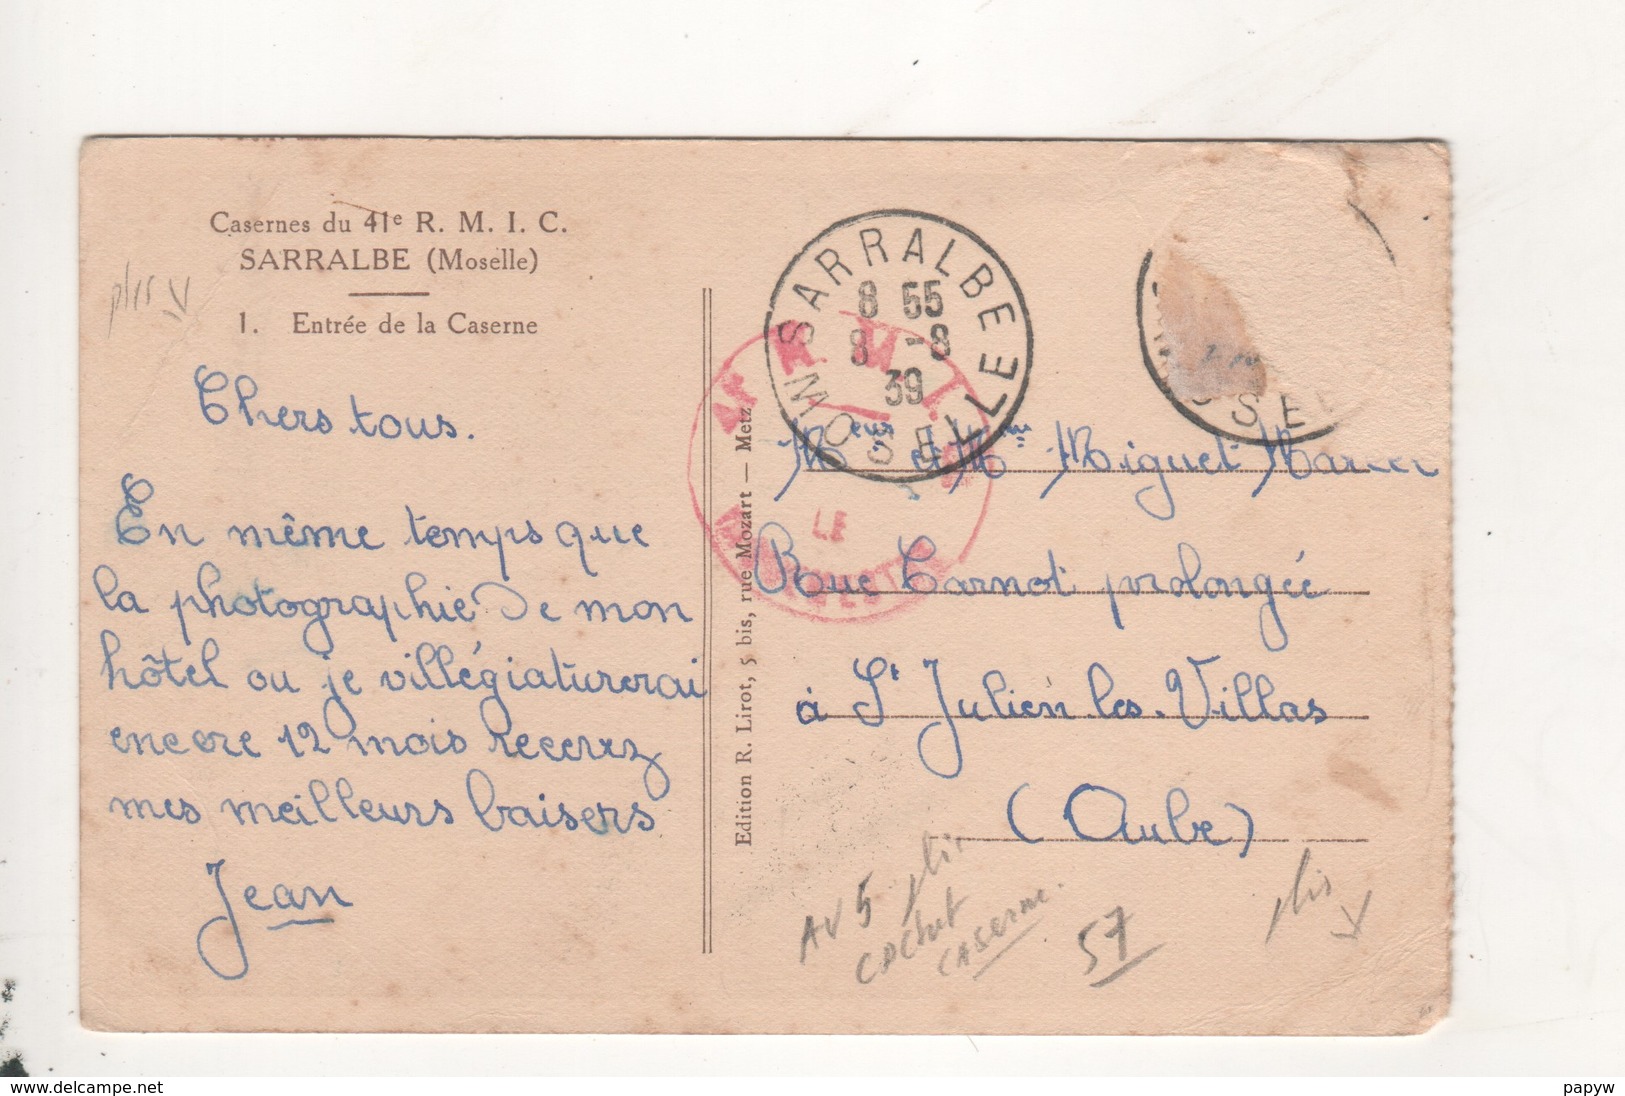 Casernes du 41e R. M. I. C.
SARRALBE (Moselle)
1. Entrée de la Caserne
plis
Chers tous.
En même temps que
la photographie de mon
hôtel ou je villégiaturerai
encore 12 mois recevez
mes meilleurs baisers
Jean
Edition R. Lirot, 5 bis, rue Mozart — Metz
SARRALBE
8 55
8 -8
39
MOSELLE
LE
Meur et Mme Miguet Marcel
Rue Carnot prolongée
à St Julien-les-Villas
(Aube)
AV 5 plis
cachet
caserne.
57
plis
www.delcampe.net
papyw